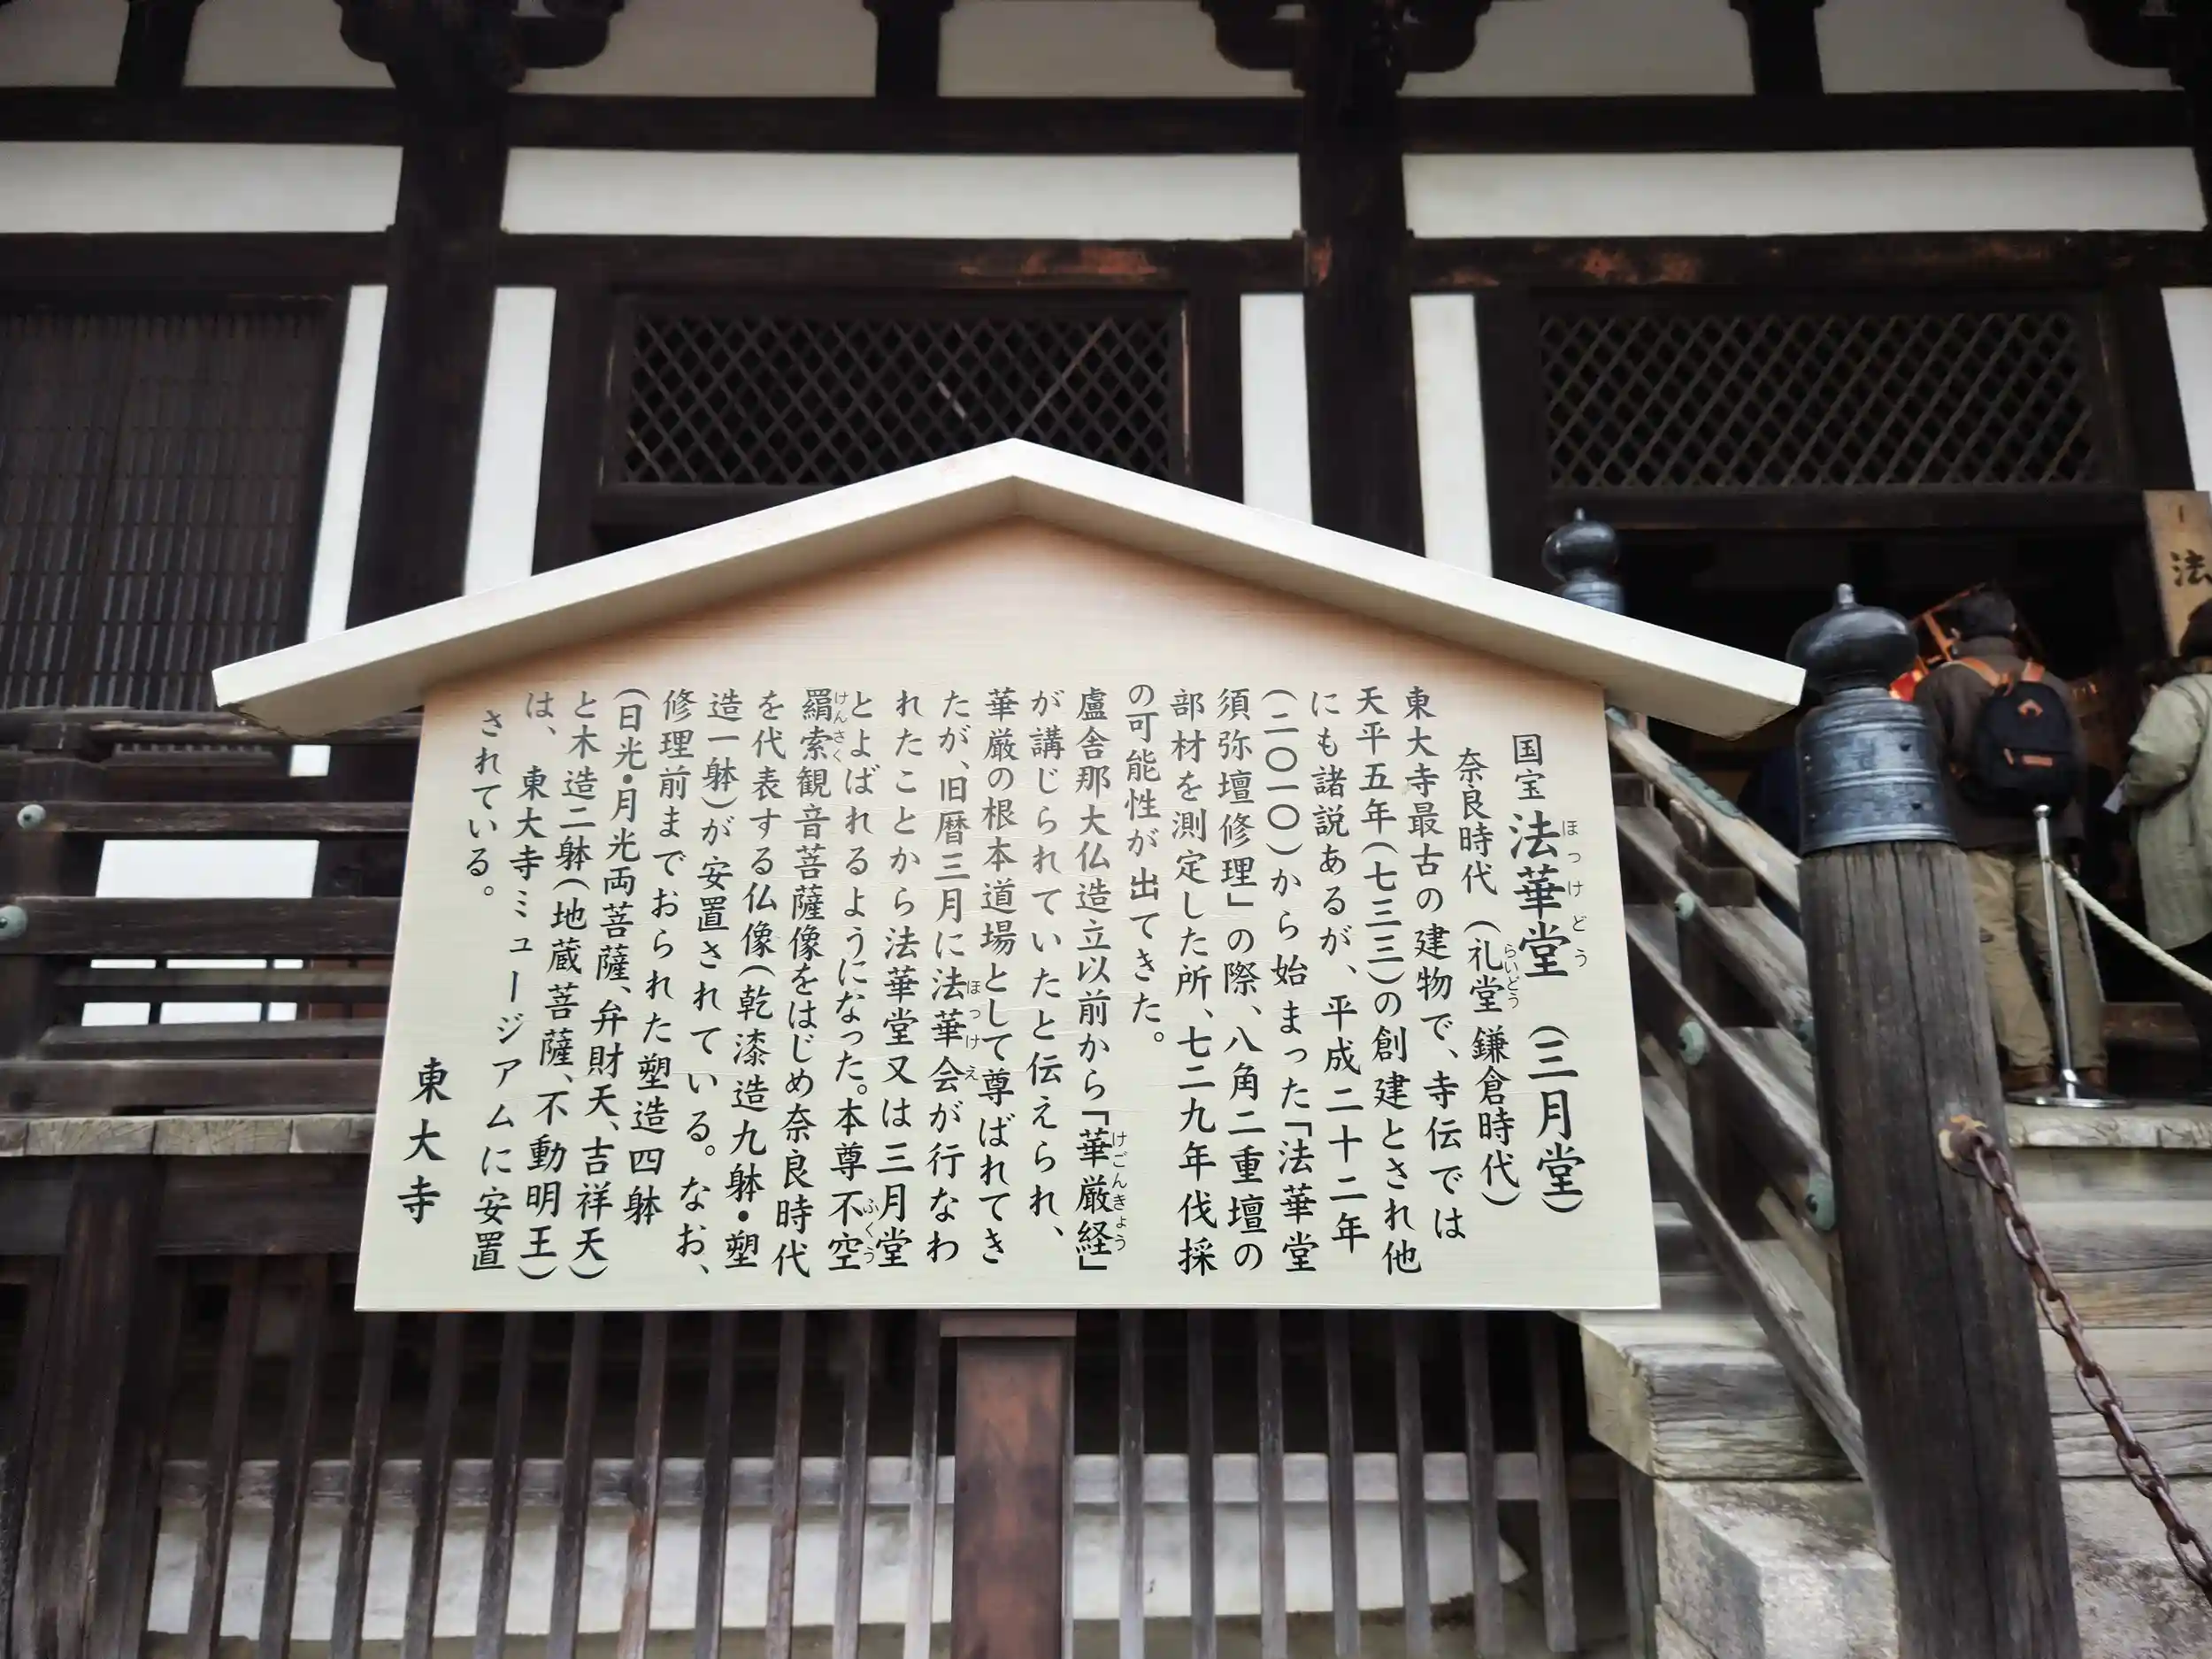 国宝 法華堂 (三月堂)
ほっけどう
奈良時代 (礼堂 鎌倉時代)
らいどう
東大寺最古の建物で、寺伝では
天平五年(七三三)の創建とされ他
にも諸説あるが、平成二十二年
(二〇一〇)から始まった「法華堂
須弥壇修理」の際、八角二重壇の
部材を測定した所、七二九年伐採
の可能性が出てきた。
盧舎那大仏造立以前から「華厳経」
けごんきょう
が講じられていたと伝えられ、
華厳の根本道場として尊ばれてき
たが、旧暦三月に法華会が行なわ
ほっけえ
れたことから法華堂又は三月堂
とよばれるようになった。本尊不空
ふくう
羂索観音菩薩像をはじめ奈良時代
けんさく
を代表する仏像(乾漆造九躰・塑
造一躰)が安置されている。なお、
修理前までおられた塑造四躰
(日光・月光両菩薩、弁財天、吉祥天)
と木造二躰(地蔵菩薩、不動明王)
は、東大寺ミュージアムに安置
されている。
東大寺
法